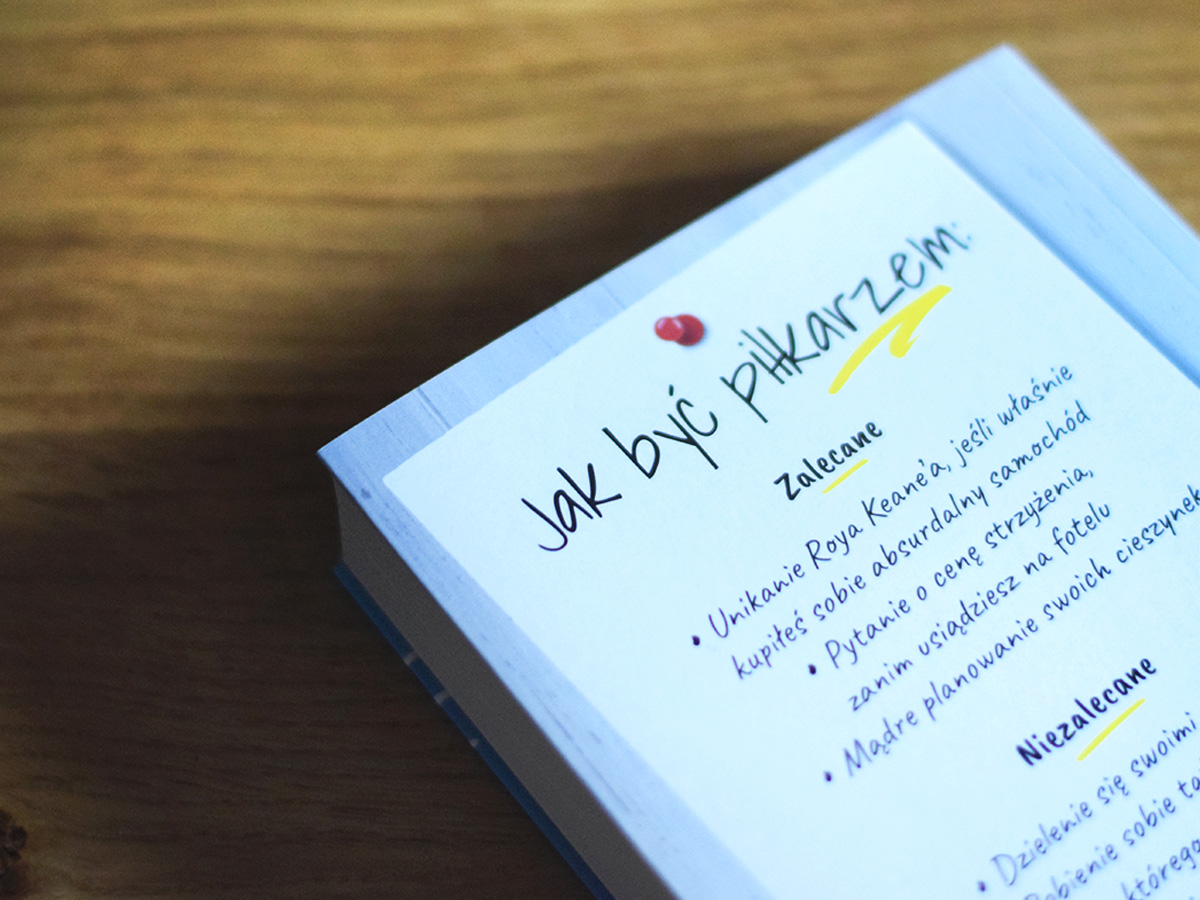 Jak być piłkarzem:
Zalecane
• Unikanie Roya Keane'a, jeśli właśnie
kupiłeś sobie absurdalny samochód
• Pytanie o cenę strzyżenia,
zanim usiądziesz na fotelu
• Mądre planowanie swoich cieszynek
Niezalecane
• Dzielenie się swoimi
sobie
którego